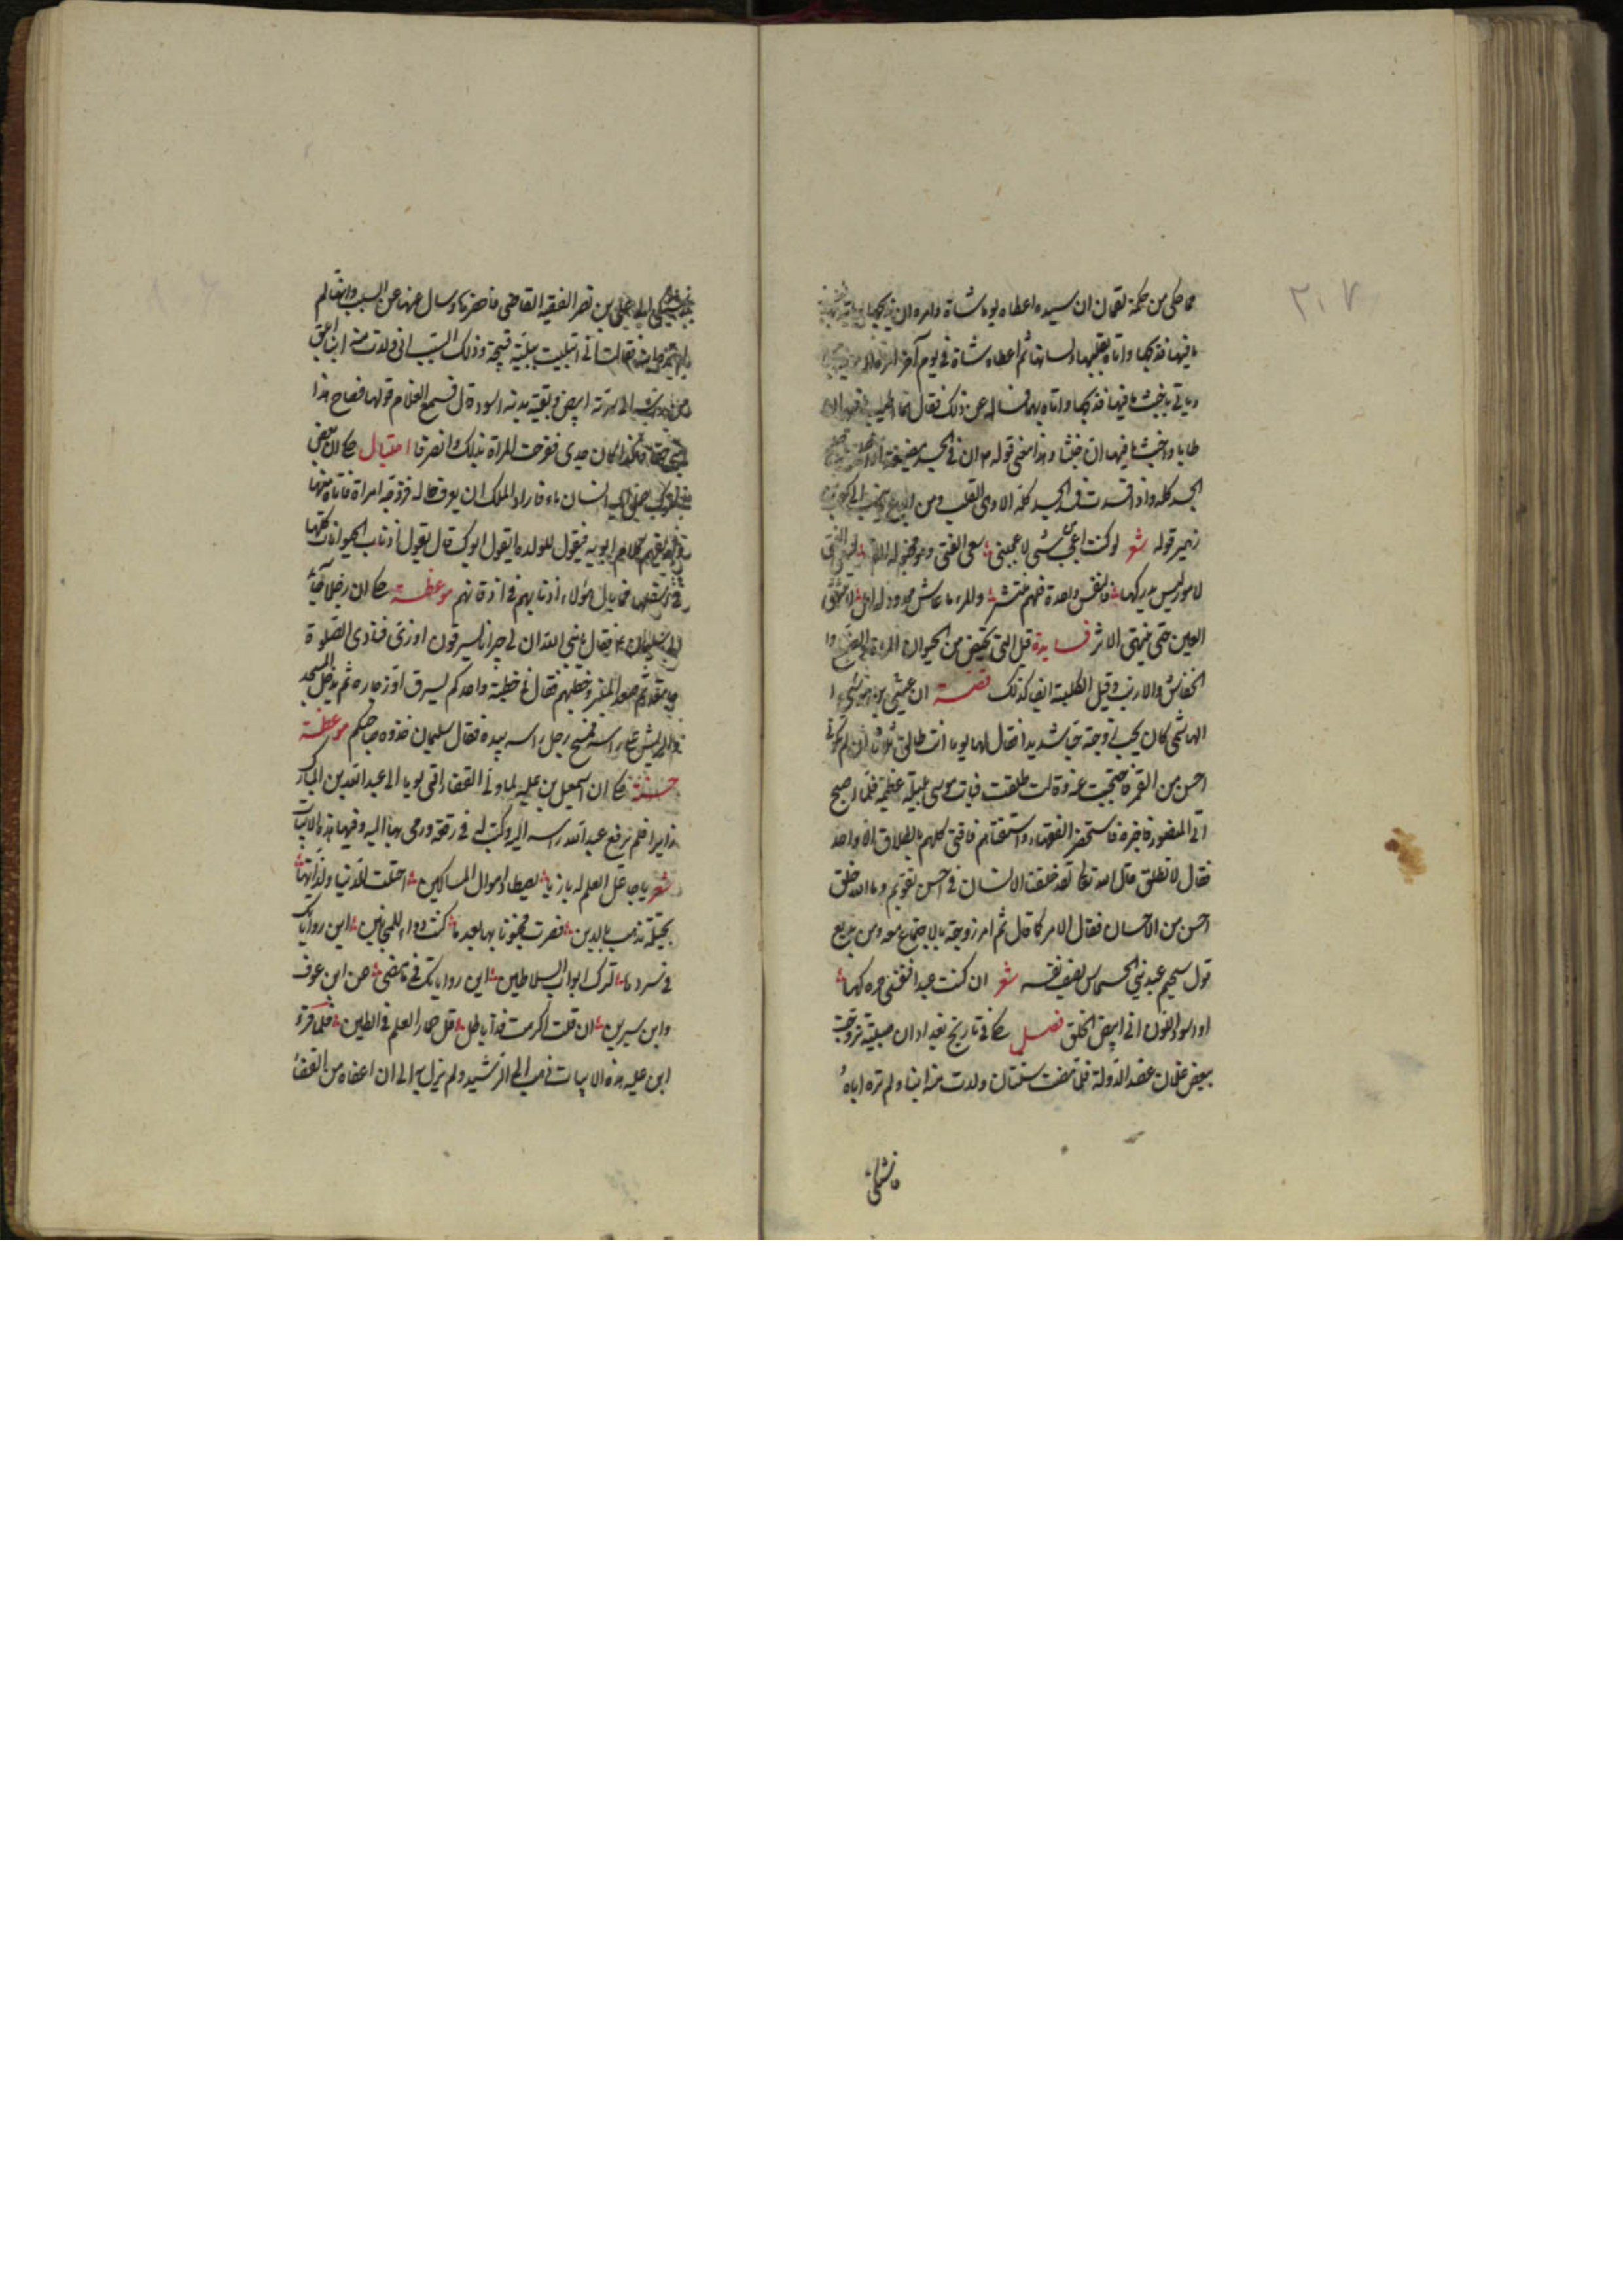 ٢٠٧
مما حكى من حكمة لقمان ان سيده اعطاه يوما شاة وامره ان يذبحها
ما فيها فذبحها واتاه بقلبها ولسانها ثم اعطاه شاة في يوم آخر
وياتي باخبث ما فيها فذبحها واتاه بهما فساله عن ذلك فقال هما اطيب ما فيها ان
طابا واخبث ما فيها ان خبثا وهذا معنى قوله ان في الجسد مضغة اذا
الجسد كله واذا فسدت فسد الجسد كله الا وهي القلب ومن
زهير قوله شعر لو كنت اعجب من شئ لاعجبني سعى الفتى وهو مخبو له القدر يسعى الفتى
لامور ليس يدركها فالنفس واحدة والهم منتشر والمرء ما عاش ممدود له امل لا تنتهي
العين حتى ينتهى الاثر فايدة قيل التي تحيض من الحيوان المراة والضبع وا
الخفاش والارنب وقيل الكلبة ايضا كذلك قصة ان عيسى بن موسى
الهاشمي كان يحب زوجته حبا شديدا فقال لها يوما انت طالق ثلاثا ان لم تكوني
احسن من القمر فاحتجبت عنه وقالت طلقت فبات موسى بليلة عظيمة فلما اصبح
اتى المنصور فاخبره فاستحضر الفقهاء واستفتاهم فافتى كلهم بالطلاق الا واحد
فقال لا تطلق قال الله تعا لقد خلقنا الانسان في احسن تقويم وما الله خلق
احسن من الانسان فقال الامر كما قال ثم امر زوجته بالاجتماع معه ومن بديع
قول سحيم عبد بني الحسحاس يصف نفسه شعر ان كنت عبدا فنفسي حرة كرما
او اسود اللون اني ابيض الخلق فصل حكا في تاريخ بغداد ان صبية تزوجت
ببعض غلمان عضد الدولة فلما مضت سنتان ولدت منه ابنا ولم تره اباه
فاشتكى
الى علي بن نصر الفقيه القاضي فاحضرها وسال عنها عن السبب وانها لم
فقالت اني ابتليت ببلية قبيحة وذلك السبب اني ولدت منه ابن ابلق
من راسه الى سرته ابيض وبقية بدنه اسود قال فسمع الغلام قولها فصاح هذا
ابني حقا وهكذا كان جدي ففرحت المراة بذلك وانصرفا احتيال حكا ان بعض
الانسان ماء فاراد الملك ان يعرف حاله فزوجه امراة فاتاه منها
كلام ابويه فيقول للولد ما يقول ابوك قال يقول اذناب الحيوانات كلها
في سفلها فما بال هؤلاء اذنابهم في اذقانهم موعظة حكا ان رجلا جاء
الى سليمان فقال يا نبي الله ان لي جيرانا يسرقون اوزي فنادى الصلوة
جامعة ثم صعد المنبر وخطبهم فقال في خطبته واحدكم يسرق اوز جاره ثم يدخل المسجد
والريش على راسه فمسح رجل راسه بيده فقال سليمان خذوه صاحبكم موعظة
حسنة حكا ان اسمعيل بن علية لما ولي القضاء اتى يوما الى عبد الله بن المبارك
زايرا فلم يرفع عبد الله راسه اليه وكتب له في رقعة ورمى بها اليه وفيها هذه الابيات
شعر يا جاعل العلم له بازيا يصطاد اموال المساكين احتلت للدنيا ولذاتها
بحيلة تذهب بالدين فصرت مجنونا بها بعد ما كنت دواء للمجانين اين رواياتك
في سردها لترك ابواب السلاطين اين رواياتك في ما مضى عن ابن عوف
وابن سيرين ان قلت اكرهت فذا باطل زل حمار العلم في الطين فلما قرء
ابن علية هذه الابيات ذهب الى الرشيد ولم يزل به الى ان اعفاه من القضاء